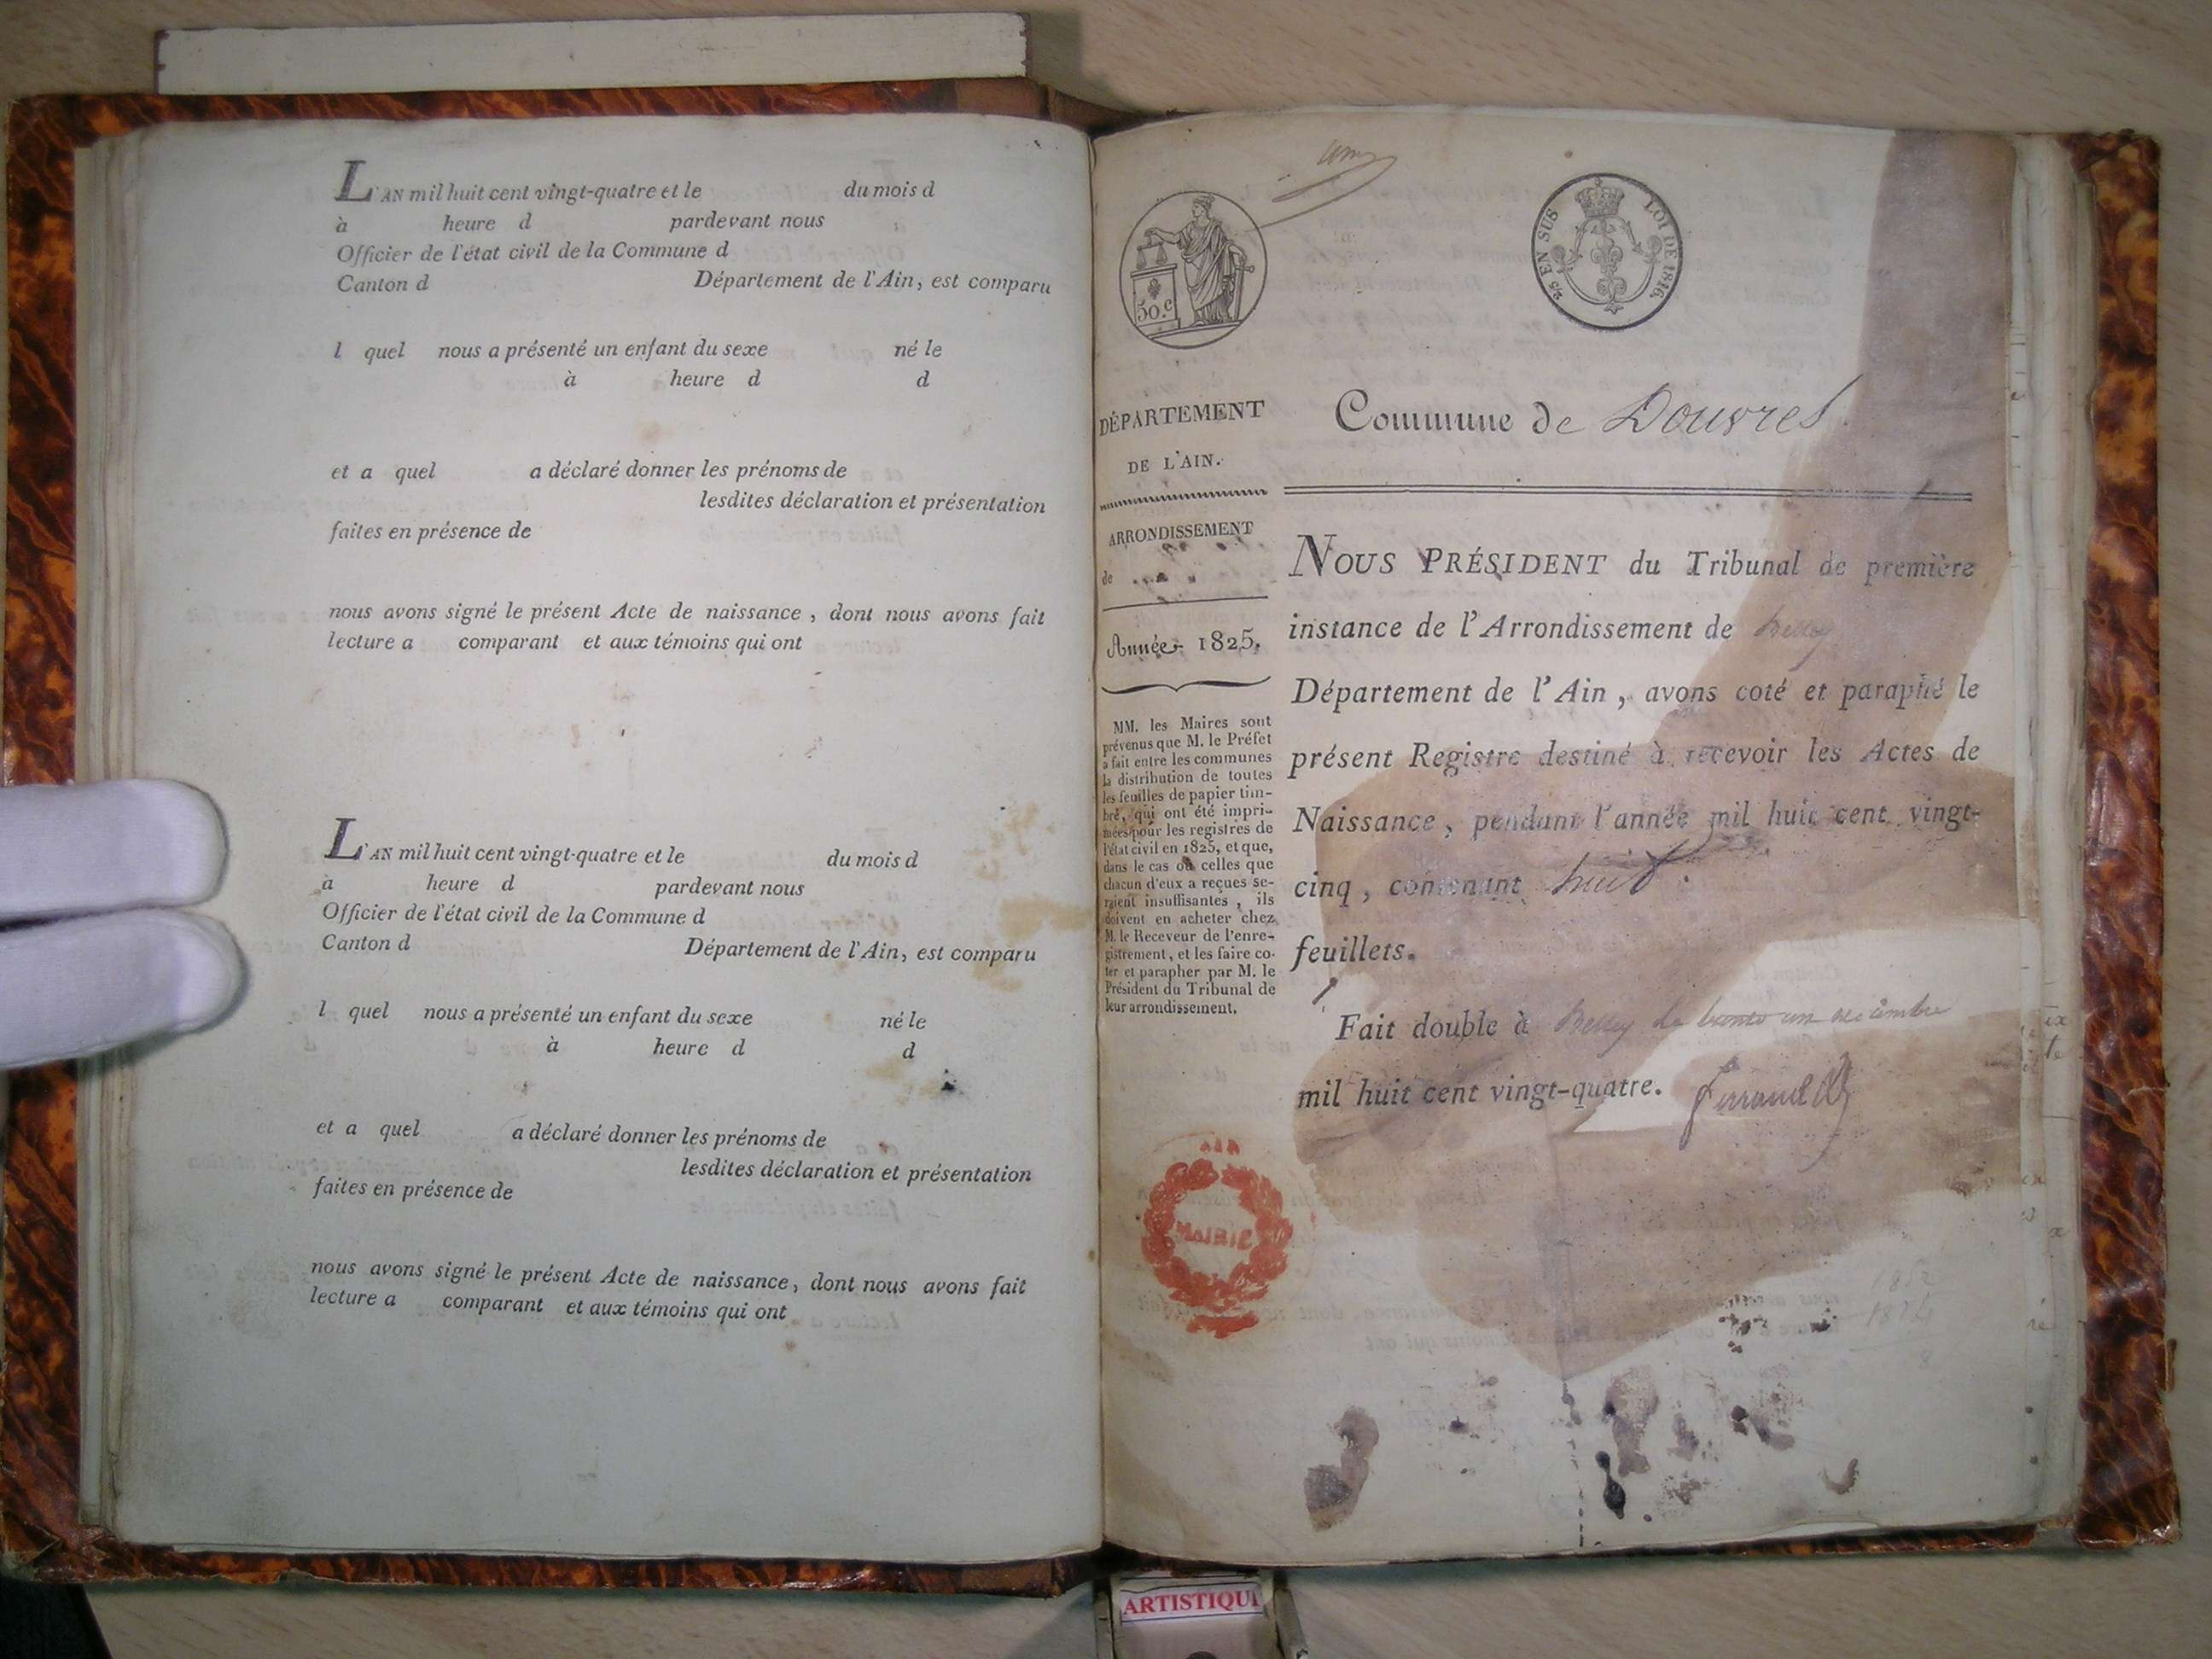 L'AN mil huit cent vingt-quatre et le du mois d
à heure d pardevant nous
Officier de l'état civil de la Commune d
Canton d Département de l'Ain, est comparu
l quel nous a présenté un enfant du sexe né le
à heure d d
et a quel a déclaré donner les prénoms de
lesdites déclaration et présentation
faites en présence de
nous avons signé le présent Acte de naissance, dont nous avons fait
lecture a comparant et aux témoins qui ont
L'AN mil huit cent vingt-quatre et le du mois d
à heure d pardevant nous
Officier de l'état civil de la Commune d
Canton d Département de l'Ain, est comparu
l quel nous a présenté un enfant du sexe né le
à heure d d
et a quel a déclaré donner les prénoms de
lesdites déclaration et présentation
faites en présence de
nous avons signé le présent Acte de naissance, dont nous avons fait
lecture a comparant et aux témoins qui ont
50.c
2/5 EN SUS LOI DE 1816.
DÉPARTEMENT
DE L'AIN.
ARRONDISSEMENT
de
Année 1825.
MM. les Maires sont
prévenus que M. le Préfet
a fait entre les communes
la distribution de toutes
les feuilles de papier tim-
bré, qui ont été impri-
mées pour les registres de
l'état civil en 1825, et que,
dans le cas où celles que
chacun d'eux a reçues se-
raient insuffisantes, ils
doivent en acheter chez
M. le Receveur de l'enre-
gistrement, et les faire co-
ter et parapher par M. le
Président du Tribunal de
leur arrondissement.
MAIRIE
Commune de Douvres
NOUS PRÉSIDENT du Tribunal de première
instance de l'Arrondissement de Belley
Département de l'Ain, avons coté et paraphé le
présent Registre destiné à recevoir les Actes de
Naissance, pendant l'année mil huit cent vingt-
cinq, contenant huit
feuillets.
Fait double à Belley le trente un décembre
mil huit cent vingt-quatre.
ARTISTIQU